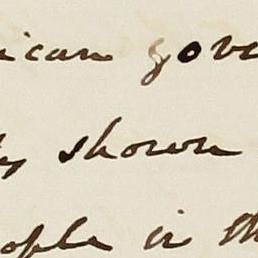 ican gove
ly shown
ople in th